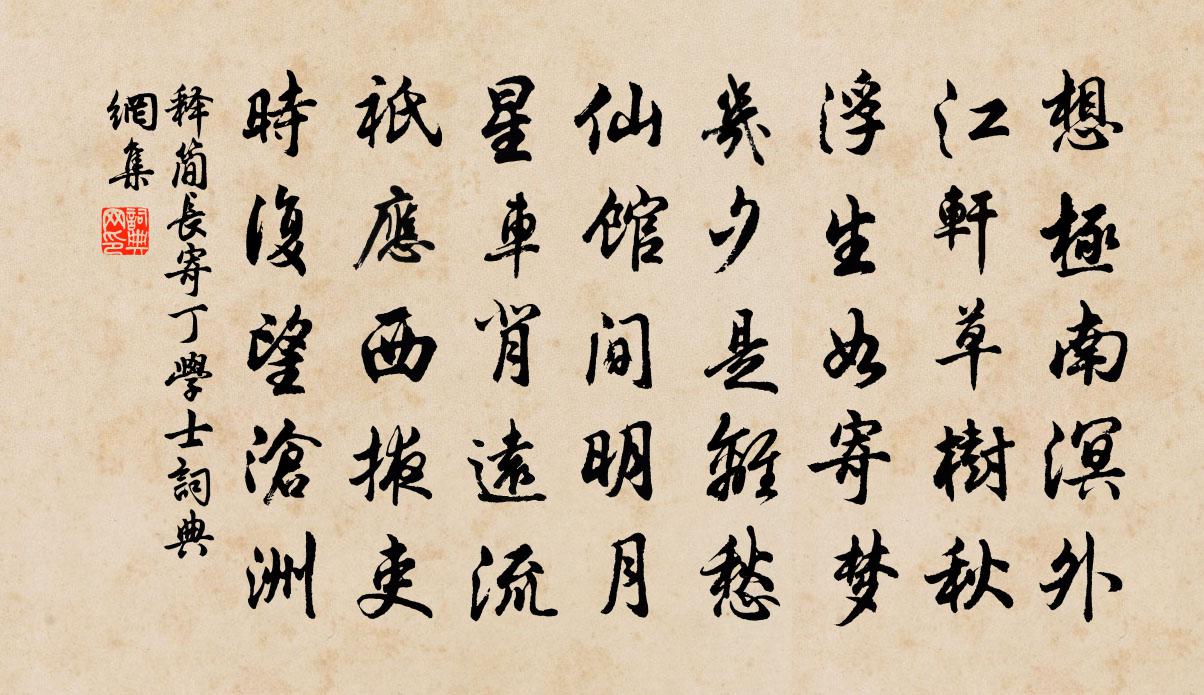 想極南溟外
江軒草樹秋
浮生如寄梦
幾夕是離愁
仙館間明月
星車背遠流
祇應西掖吏
時復望滄洲
释簡長寄丁學士詞典
網集
詞典网印